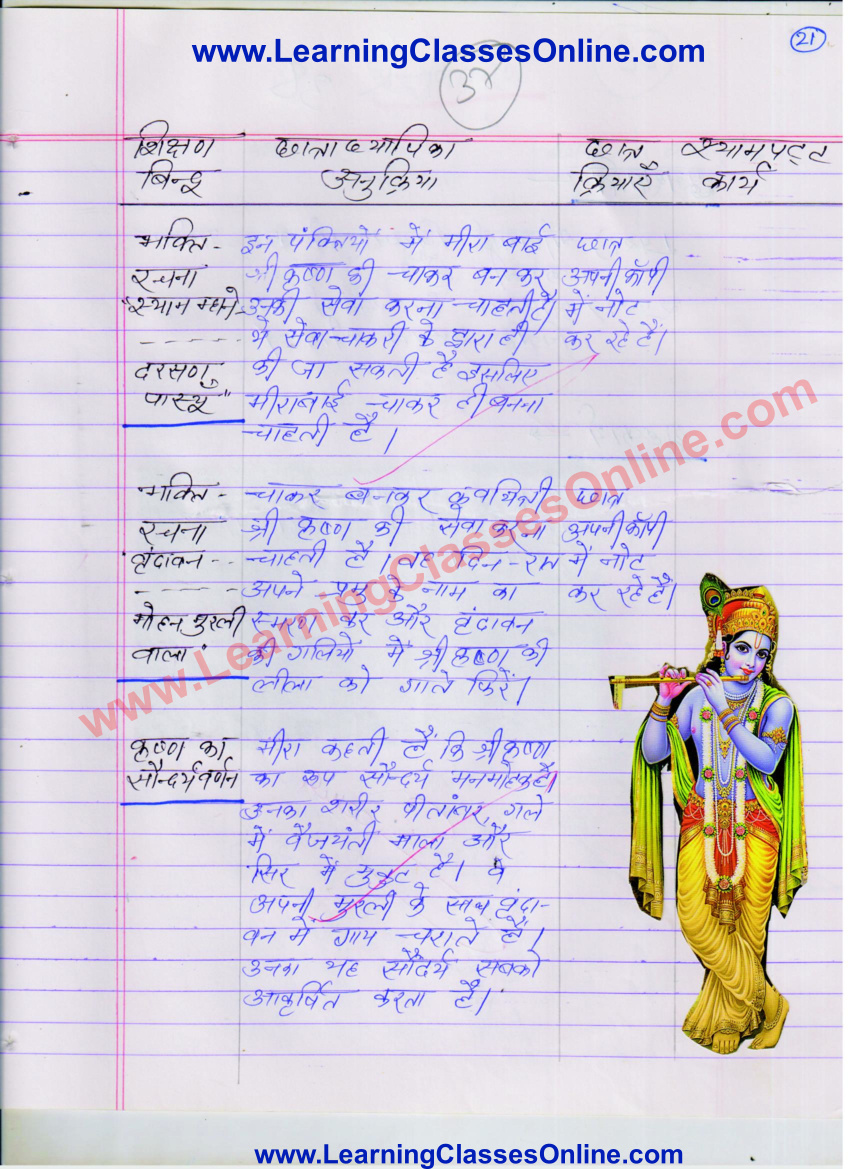 www.LearningClassesOnline.com
21
शिक्षण छात्राध्यापिका छात्र श्यामपट्ट
बिन्दु अनुक्रिया क्रियाएँ कार्य
भक्ति - इन पंक्तियों में मीरा बाई छात्र
रचना श्री कृष्ण की चाकर बन कर अपनी कॉपी
"श्याम म्हाने उनकी सेवा करना चाहती है। में नोट
------ ये सेवा-चाकरी के द्वारा ही कर रहे हैं।
दरसण की जा सकती है इसलिए
पास्यूँ" मीराबाई चाकर ही बनना
चाहती है।
भक्ति - चाकर बनकर कवयित्री छात्र
रचना श्री कृष्ण की सेवा करना अपनी कॉपी
वृंदावन -- चाहती है। वह दिन - में नोट
------ अपने प्रभु के नाम का कर रहे है।
मोहन मुरली स्मरण कर और वृंदावन
वाला की गलियों में श्री कृष्ण की
लीला को गाते फिरें।
कृष्ण का मीरा कहती हैं कि श्री कृष्ण
सौन्दर्य वर्णन का रूप सौंदर्य मनमोहक है।
उनका शरीर पीतांबर, गले
में वैजयंती माला और
सिर में मुकुट है। वे
अपनी मुरली के साथ वृंदा-
वन में गाय चराते है।
उनका यह सौंदर्य सबको
आकृर्षित करता है।
www.LearningClassesOnline.com
www.LearningClassesOnline.com